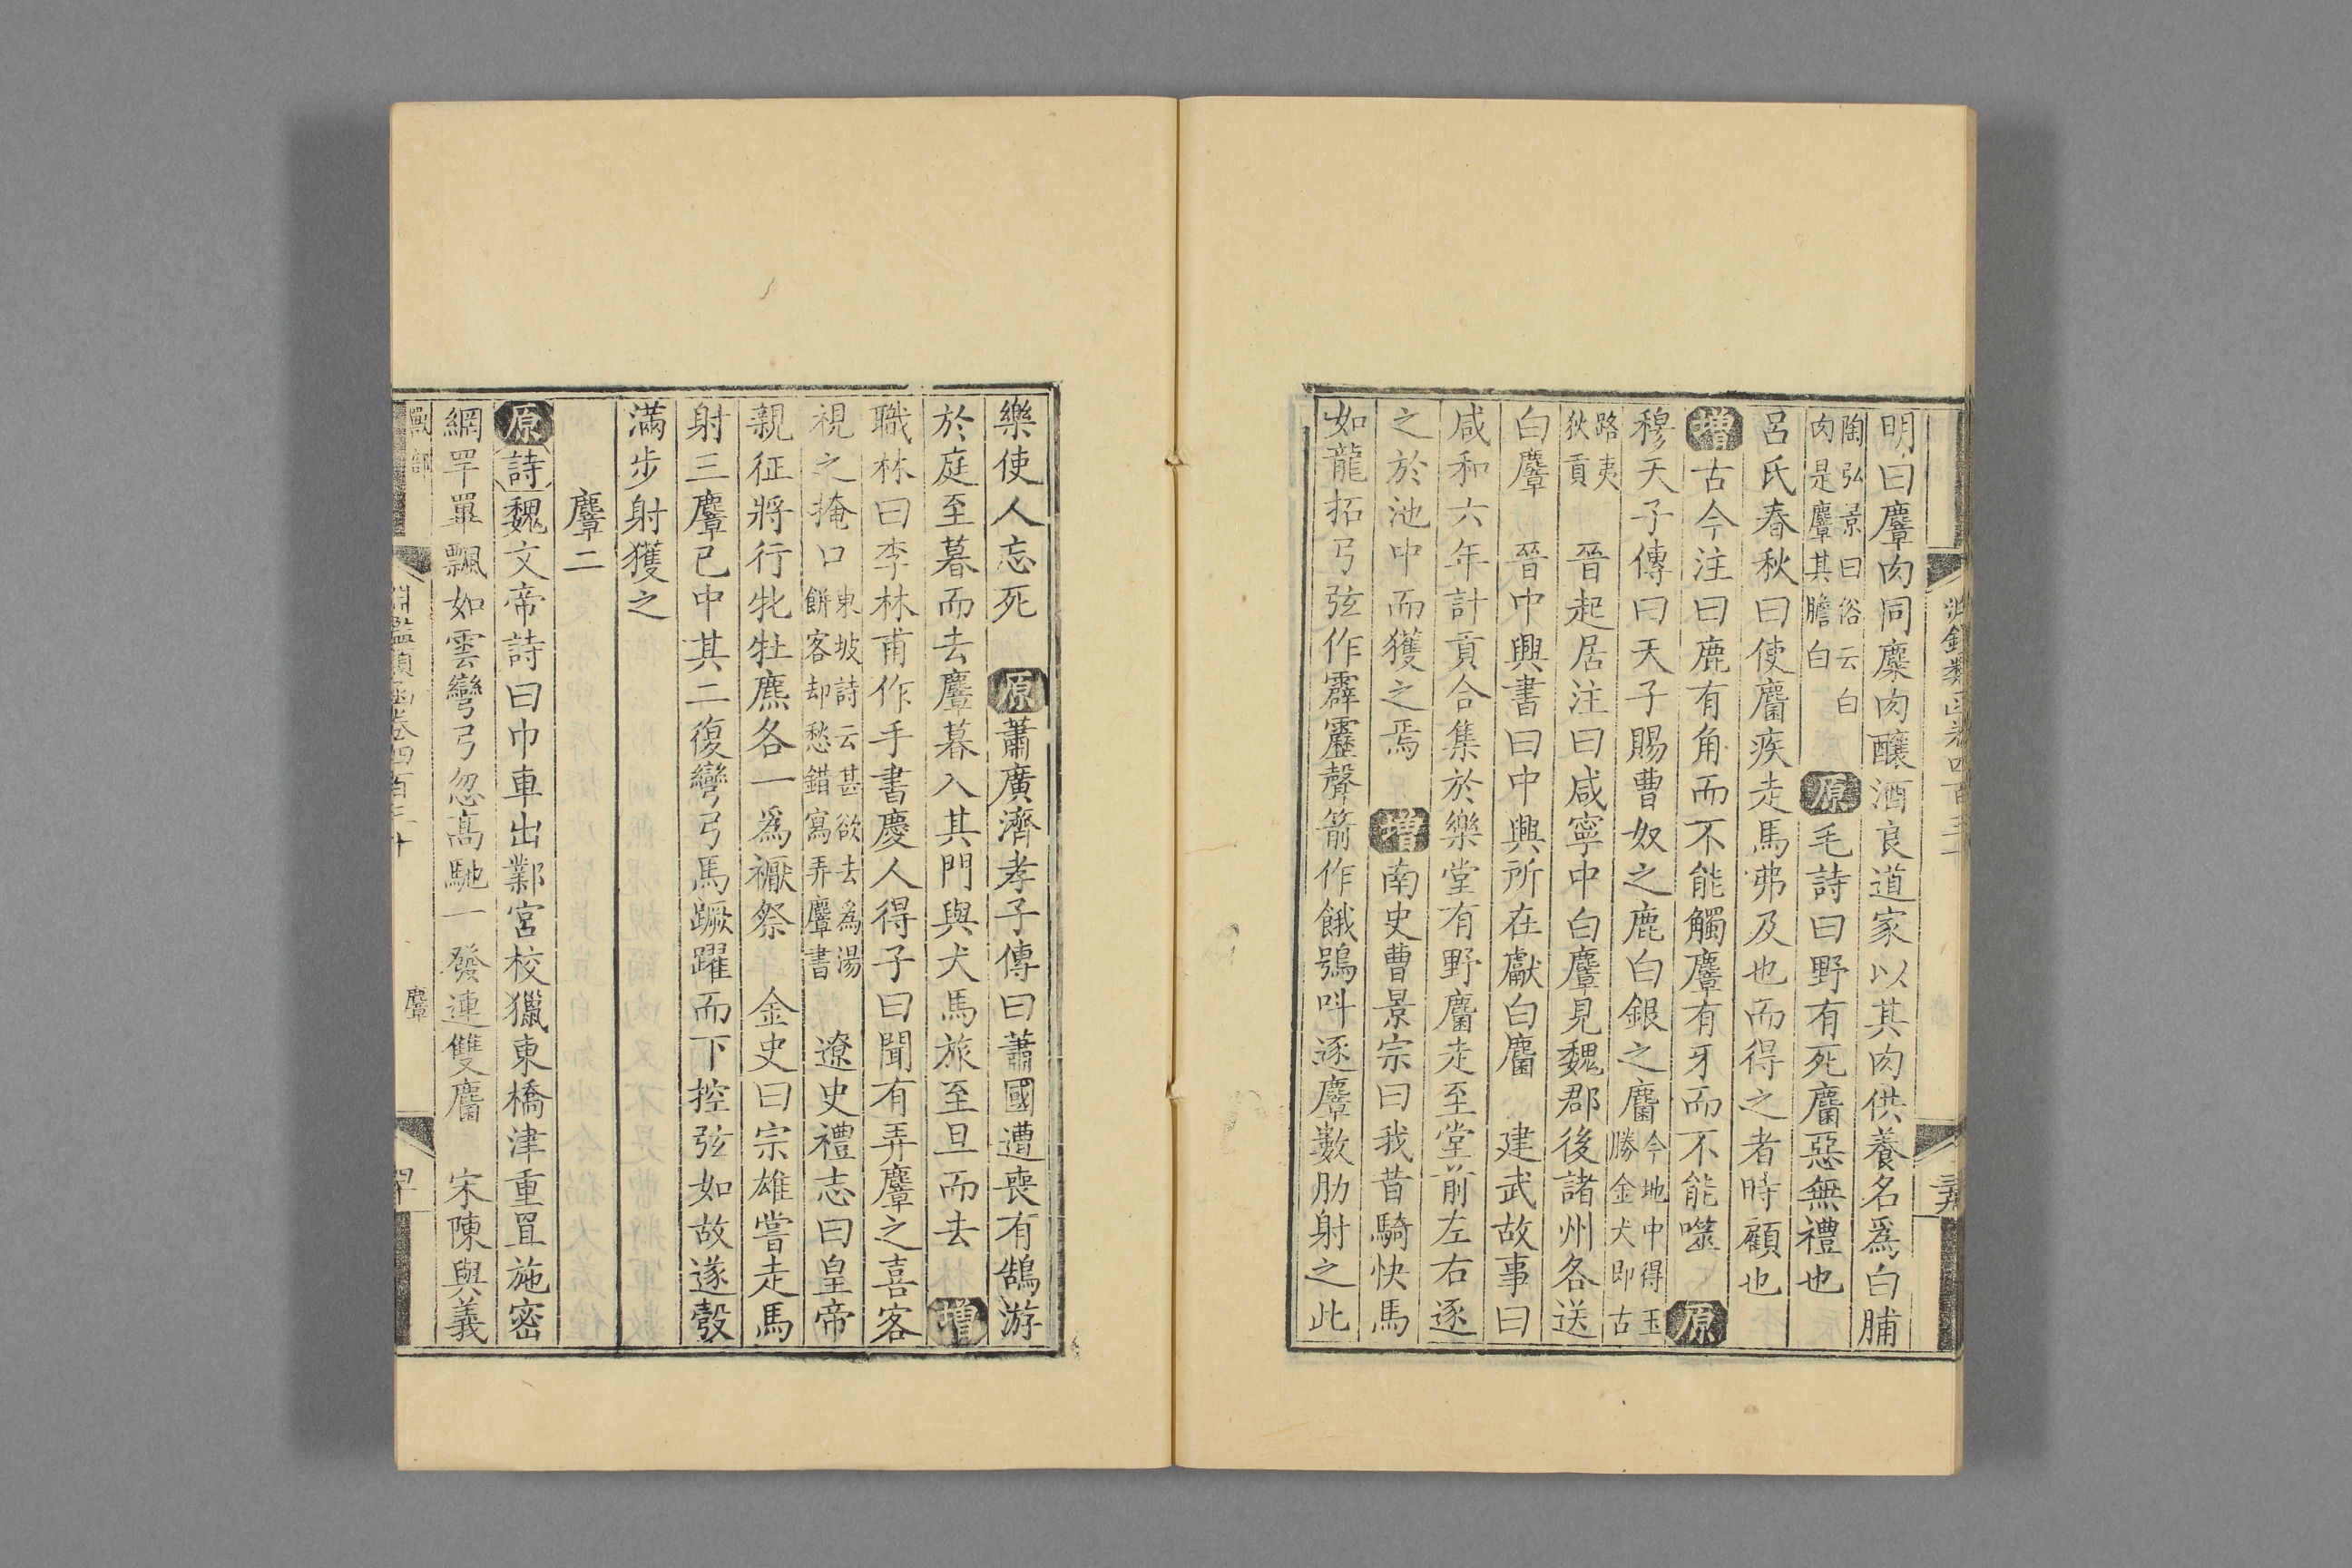 明曰麞肉同麋肉釀酒良道家以其肉供養名爲白脯
陶弘景曰俗云白
肉是麞其膽白
原毛詩曰野有死麕惡無禮也
呂氏春秋曰使麕疾走馬弗及也而得之者時顧也
增古今注曰鹿有角而不能觸麞有牙而不能噬原
穆天子傳曰天子賜曹奴之鹿白銀之麕
今地中得玉
勝金犬即古
路夷
狄貢
晉起居注曰咸寧中白麞見魏郡後諸州各送
白麞 晉中興書曰中興所在獻白麕 建武故事曰
咸和六年計貢合集於樂堂有野麕走至堂前左右逐
之於池中而獲之焉 增南史曹景宗曰我昔騎快馬
如龍拓弓弦作霹靂聲箭作餓鴞叫逐麞數肋射之此
樂使人忘死 原蕭廣濟孝子傳曰蕭國遭喪有鵠游
於庭至暮而去麞暮入其門與犬馬旅至旦而去 增
職林曰李林甫作手書慶人得子曰聞有弄麞之喜客
視之掩口
東坡詩云甚欲去爲湯
餅客却愁錯寫弄麞書
遼史禮志曰皇帝
親征將行牝牡麃各一爲禷祭 金史曰宗雄嘗走馬
射三麞已中其二復彎弓馬蹶躍而下控弦如故遂彀
滿步射獲之
麞二
原詩魏文帝詩曰巾車出鄴宮校獵東橋津重罝施密
網罕罼飄如雲彎弓忽高馳一發連雙麕 宋陳與義
獸部
淵鑑類函卷四百三十
麞